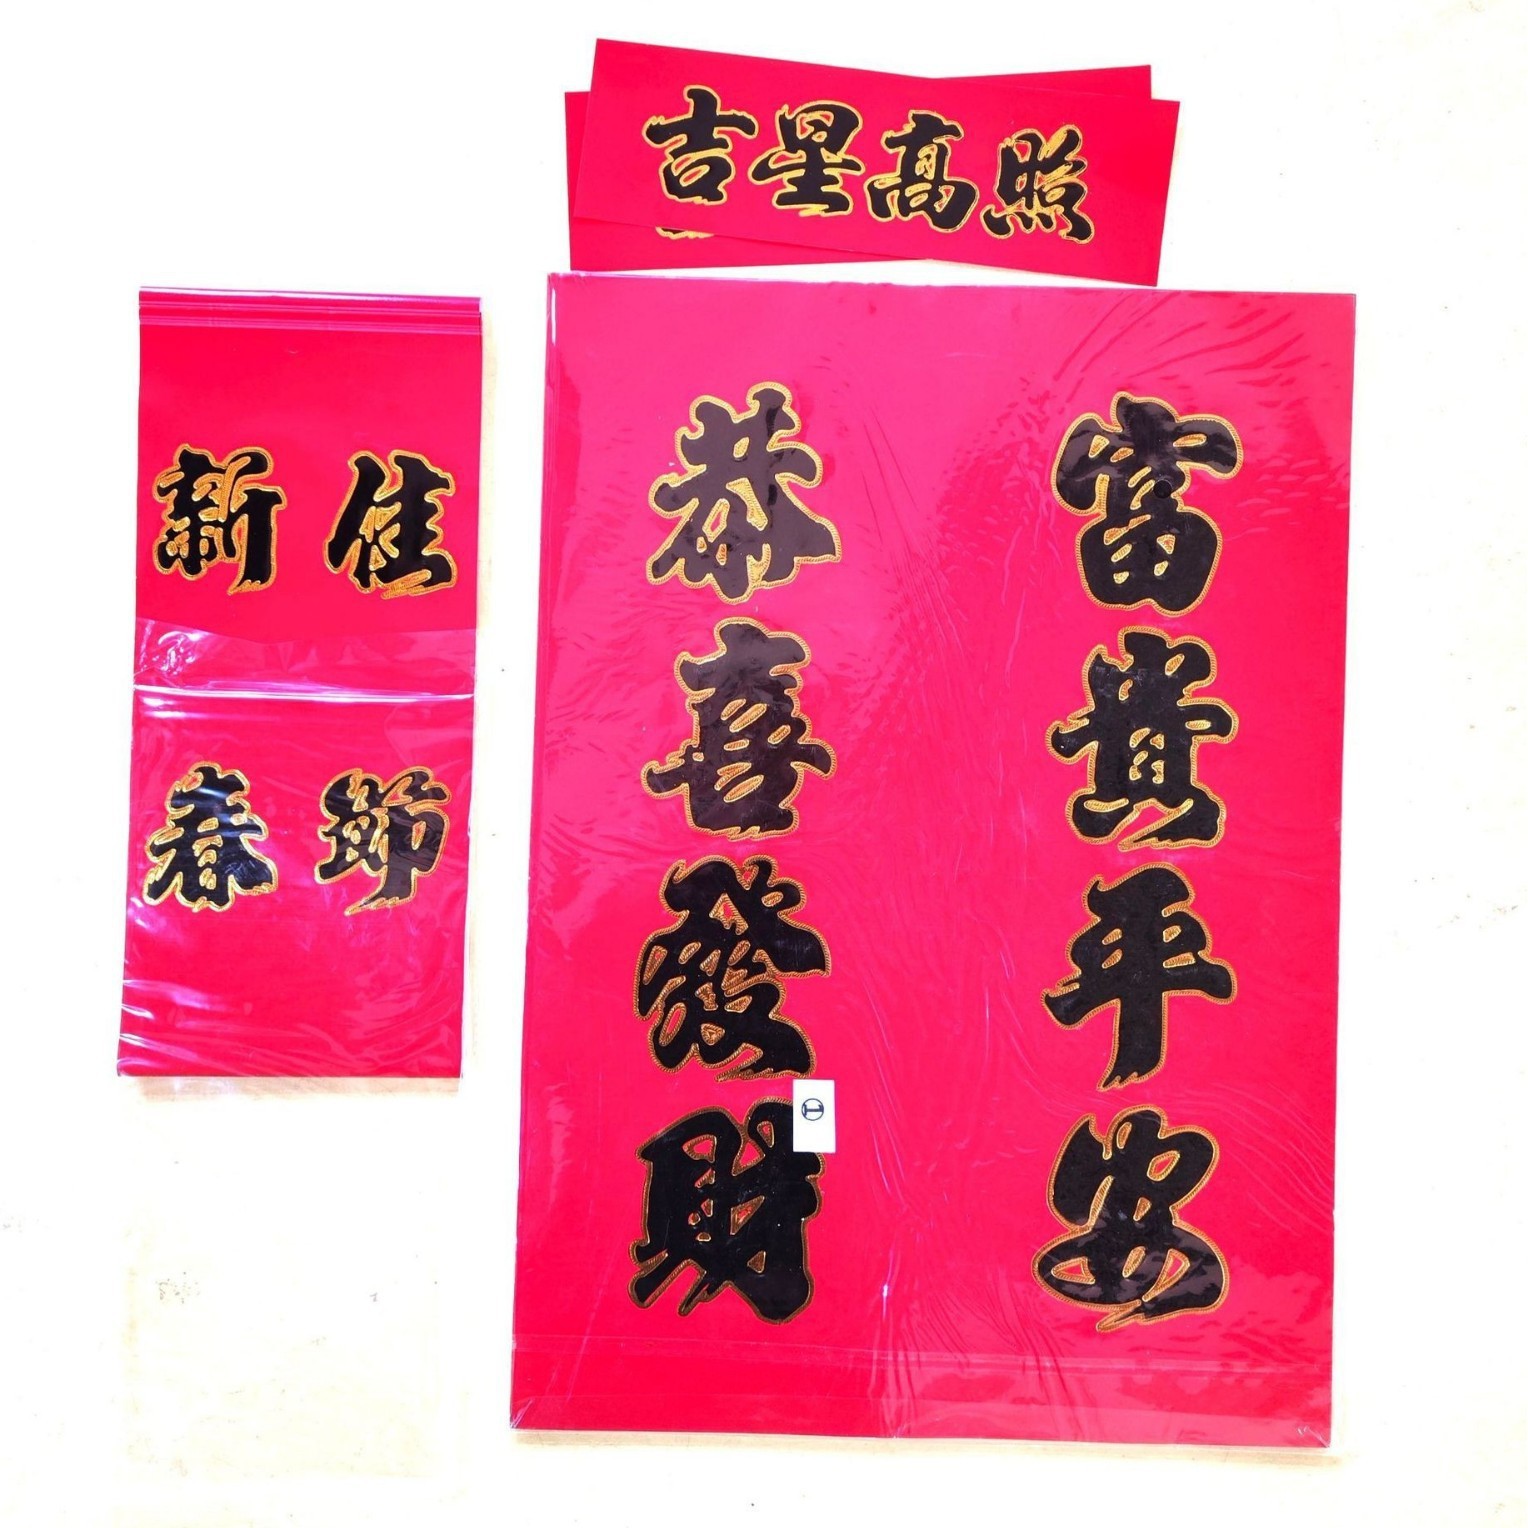 吉星高照
新春
佳節
恭喜發財
富貴平安
①